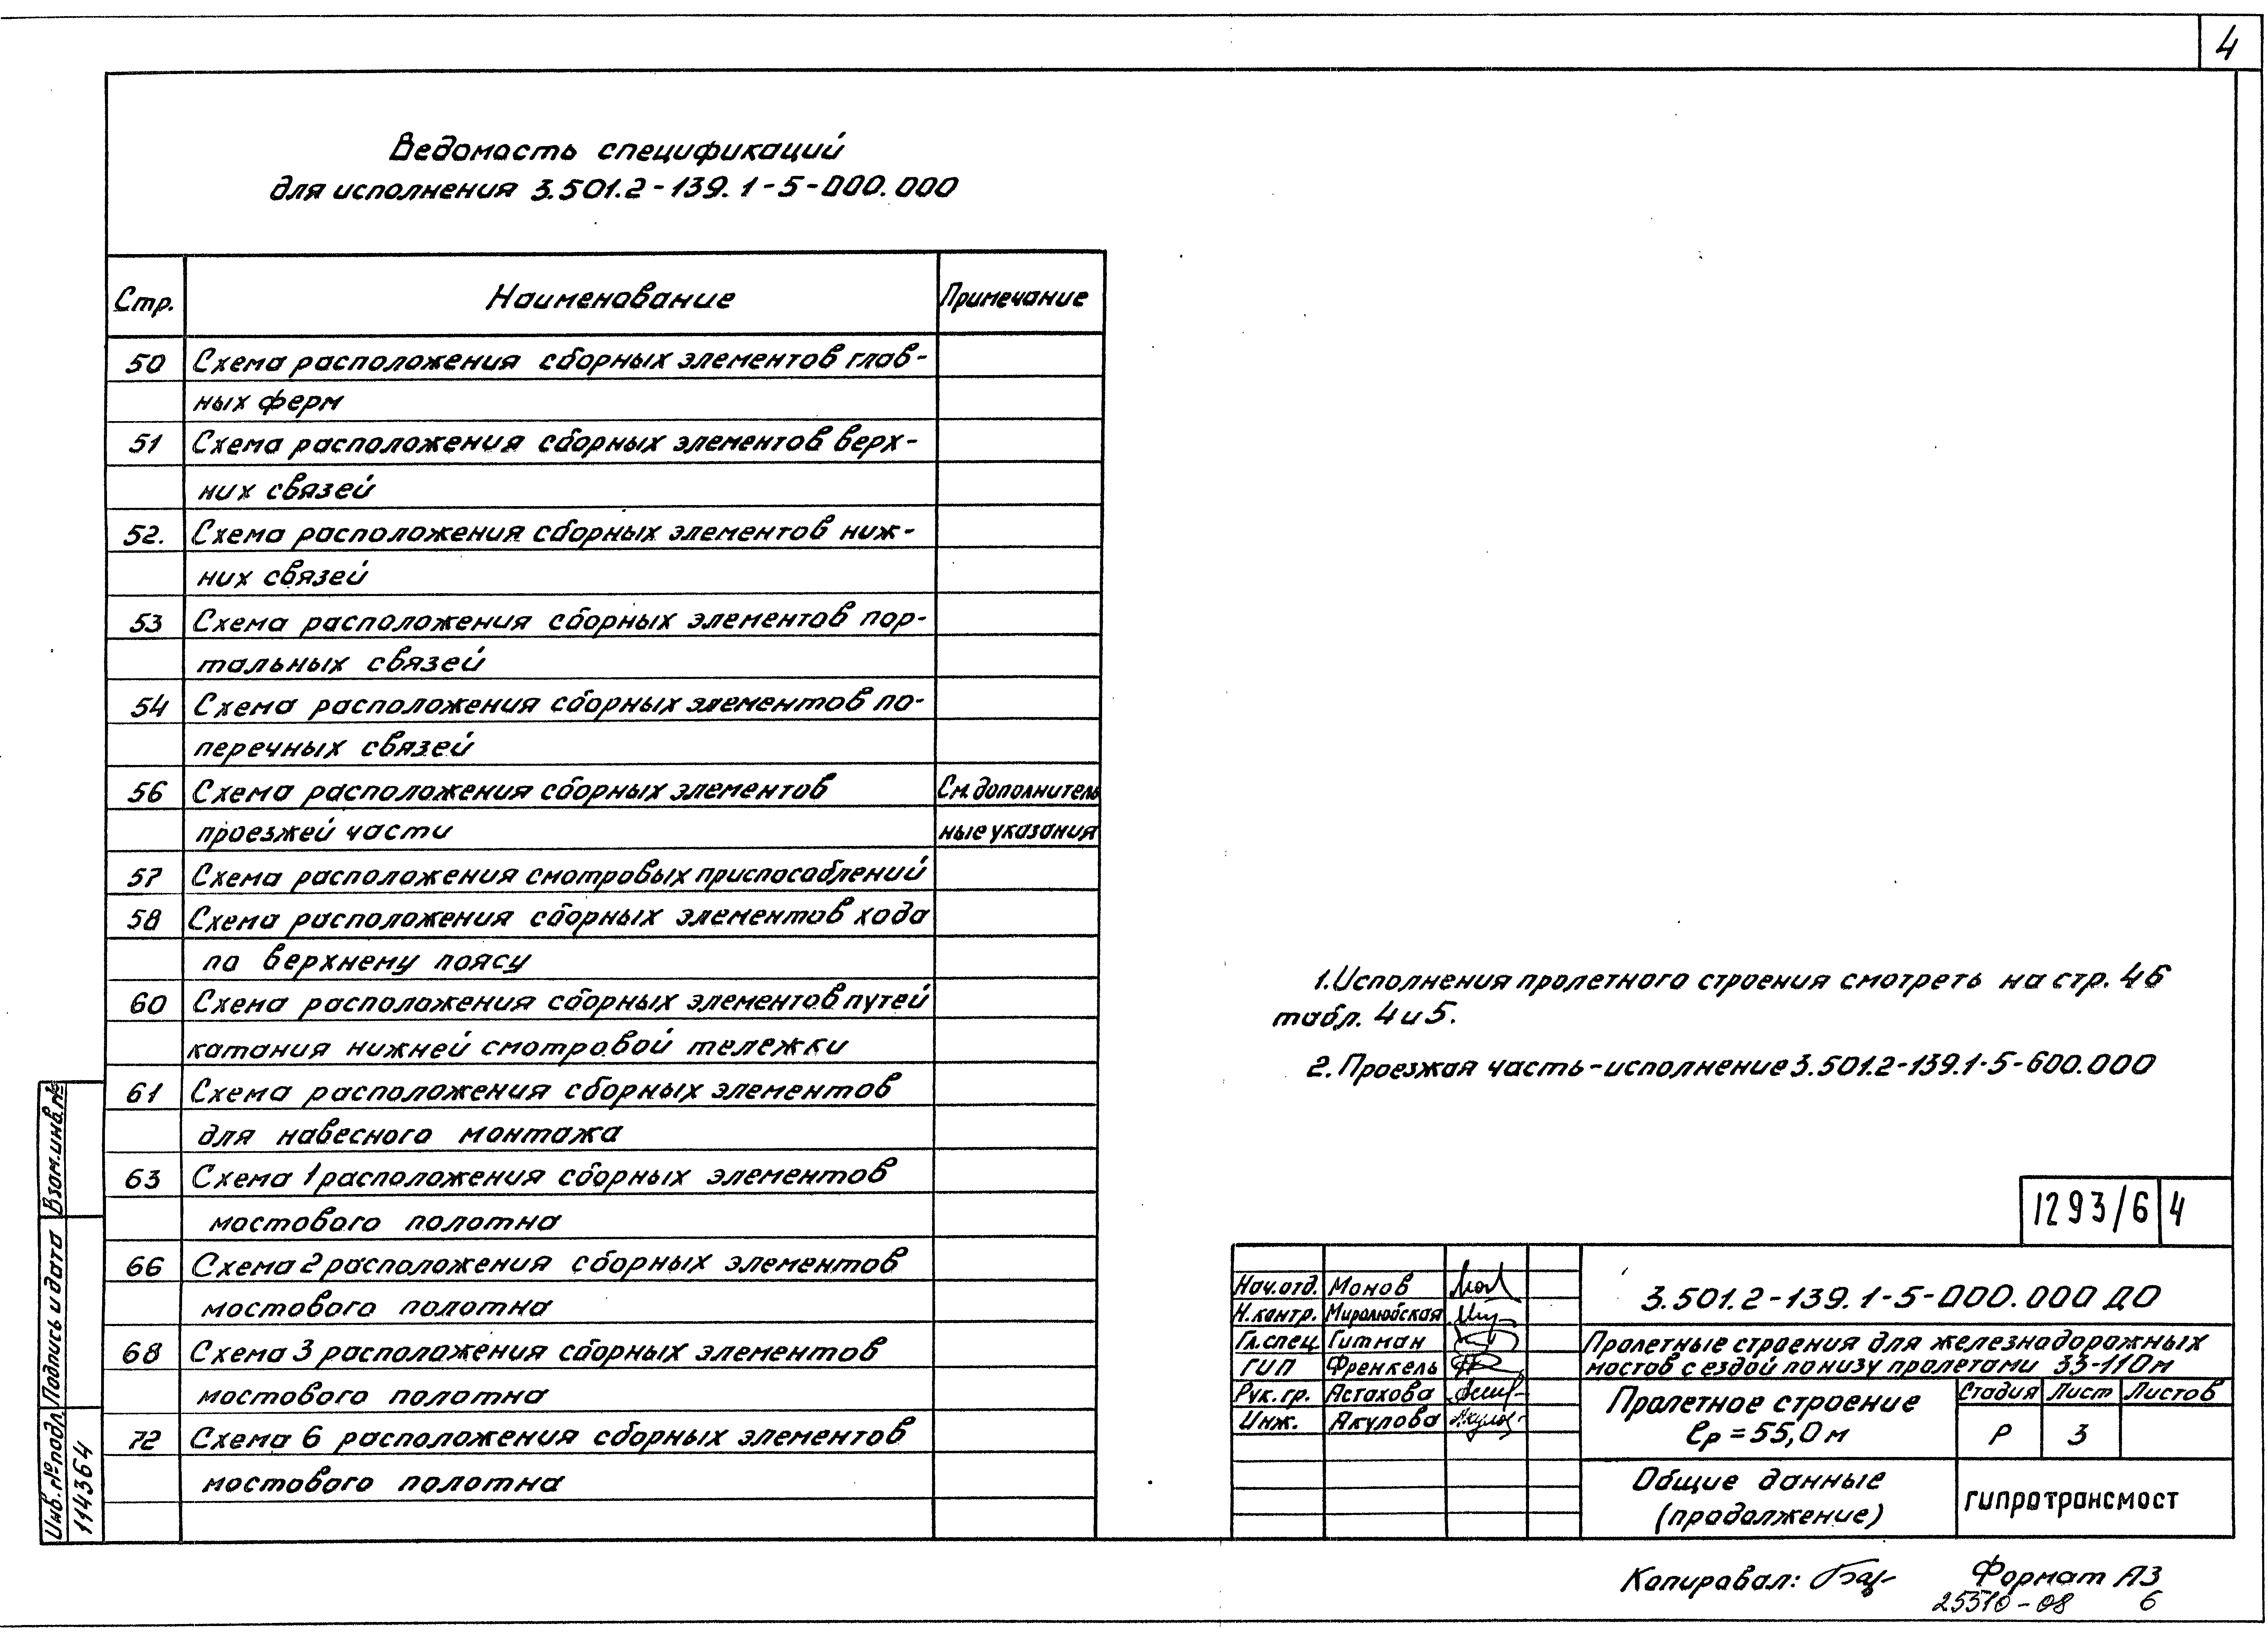 4
Ведомость спецификаций
для исполнения 3.501.2-139.1-5-000.000
Стр. Наименование Примечание
50 Схема расположения сборных элементов глав-
ных ферм
51 Схема расположения сборных элементов верх-
них связей
52. Схема расположения сборных элементов ниж-
них связей
53 Схема расположения сборных элементов пор-
тальных связей
54 Схема расположения сборных элементов по-
перечных связей
56 Схема расположения сборных элементов См. дополнитель
проезжей части ные указания
57 Схема расположения смотровых приспособлений
58 Схема расположения сборных элементов хода
по верхнему поясу
60 Схема расположения сборных элементов путей
катания нижней смотровой тележки
61 Схема расположения сборных элементов
для навесного монтажа
63 Схема 1 расположения сборных элементов
мостового полотна
66 Схема 2 расположения сборных элементов
мостового полотна
68 Схема 3 расположения сборных элементов
мостового полотна
72 Схема 6 расположения сборных элементов
мостового полотна
1. Исполнения пролетного строения смотреть на стр. 46
табл. 4 и 5.
2. Проезжая часть - исполнение 3.501.2-139.1-5-600.000
1293/6 4
Нач.отд. Монов
Н.контр. Миролюбская
Гл.спец. Гитман
ГИП Френкель
Рук.гр. Астахова
Инж. Якулова
3.501.2-139.1-5-000.000 ДО
Пролетные строения для железнодорожных
мостов с ездой понизу пролетами 33-110м
Пролетное строение
ℓр = 55,0 м
Стадия Лист Листов
Р 3
Общие данные
(продолжение)
гипротрансмост
Взам.инв.№
Подпись и дата
Инв.№ подл.
194364
Копировал: Формат А3
25570-08 6